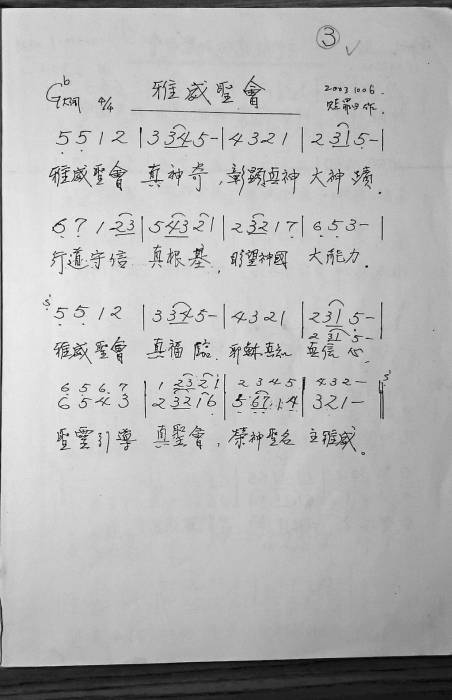 ③
雅威聖會
G♭大調 4/4
20031006.
5 5 1 2 | 3 34 5 - | 4 3 2 1 | 2 31 5 - |
雅威聖會 真神奇，彰顯真神 大神蹟．
6 7 1 23 | 5 43 21 | 2 32 1 7 | 6 5 3 - |
行道守信 真根基．盼望神國 大能力．
S
5 5 1 2 | 3 34 5 - | 4 3 2 1 | 2 31 5 - |
2 31 5 -
雅威聖會 真福臨．耶穌真 真信心．
S
6 5 6 7 | 1 23 21 | 2 3 4 5 | 4 3 2 -
6 5 4 3 | 2 32 16 | 5 67 1 4 | 3 2 1 -
聖靈引導 真聖會，榮神聖名 主雅威。